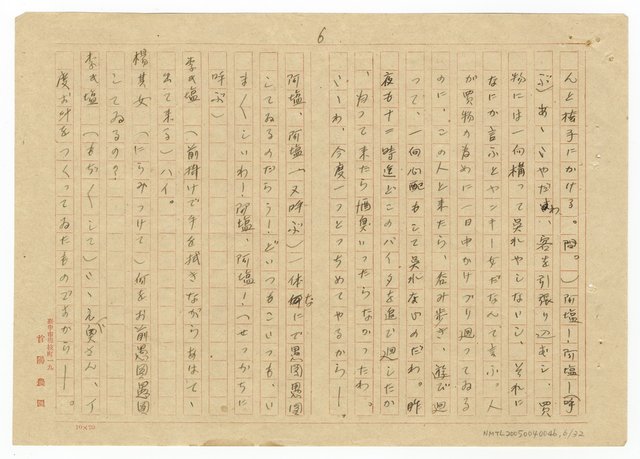 6
んと椅子にかける。間。）阿塩ー！阿塩ー！（呼
ぶ）あゝいやだわ、客を引張り込むし、買
物には一向構って呉れやしないし、それに
なにか言ふとヤンキー女だなんて言ふ。人
が買物の為めに一日中かけづり廻ってゐる
のに、この人と来たら、呑み歩き、遊び廻
って、一向心配もして呉れないのだわ。昨
夜も十二時迄もこのバイタを追ひ廻したか
、帰って来たら酒臭いったらなかったわ。
いゝわ、今度一つとっちめてやるからー。
阿塩、阿塩（又呼ぶ）体何に愚図愚図
してゐるのだらう！どいつもこいつも、い
まいましいわ！阿塩、阿塩！（せっかちに
呼ぶ）
李氏塩（前掛けで手を拭きながらあはてゝ
出て来る）ハイ。
楊其女（にらみつけて）何をお前愚図愚図
してゐるの？
李氏塩（もぢ〱して）いゝえ奥さんが、イ
度お叶を つくってゐたものですからー。
新学園用紙町一九
首陽農園
10×20
NMTL20050040046, 6/32